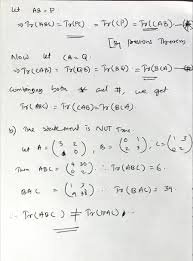 Let AB = P
⇒ Tr(ABC) = Tr(PC) = Tr(CP) = Tr(CAB) —
[By previous Theorem]
Now let CA = Q
⇒ Tr(CAB) = Tr(QB) = Tr(BQ) = Tr(BCA) —
Combining both * and #, we get
Tr(ABC) = Tr(CAB) = Tr(BCA)
b) The statement is NOT True
Let A =
Then ABC = ∴ Tr(ABC) = 6.
BAC = ⇒ Tr(BAC) = 39.
∴ Tr(ABC) ≠ Tr(BAC)